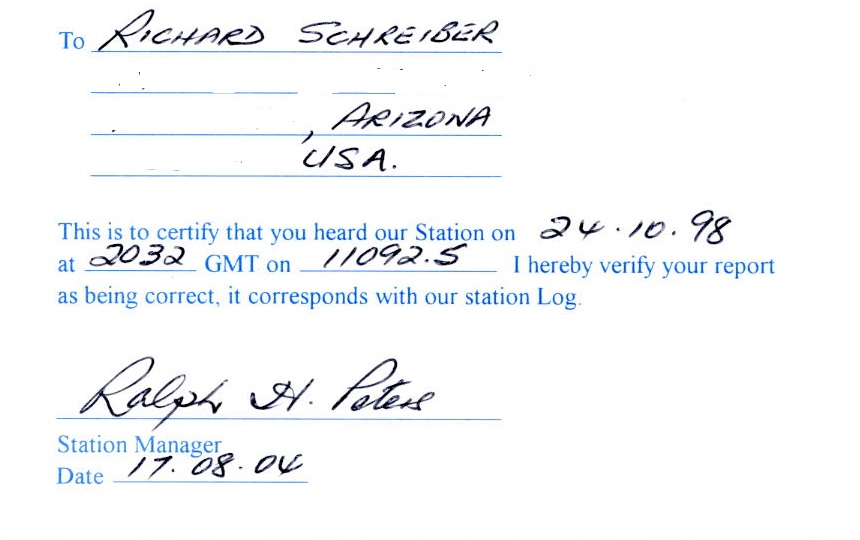 To RICHARD SCHREIBER
, ARIZONA
USA.
This is to certify that you heard our Station on 24.10.98
at 2032 GMT on 11092.5 I hereby verify your report
as being correct, it corresponds with our station Log.
Ralph H. Peters
Station Manager
Date 17.08.04